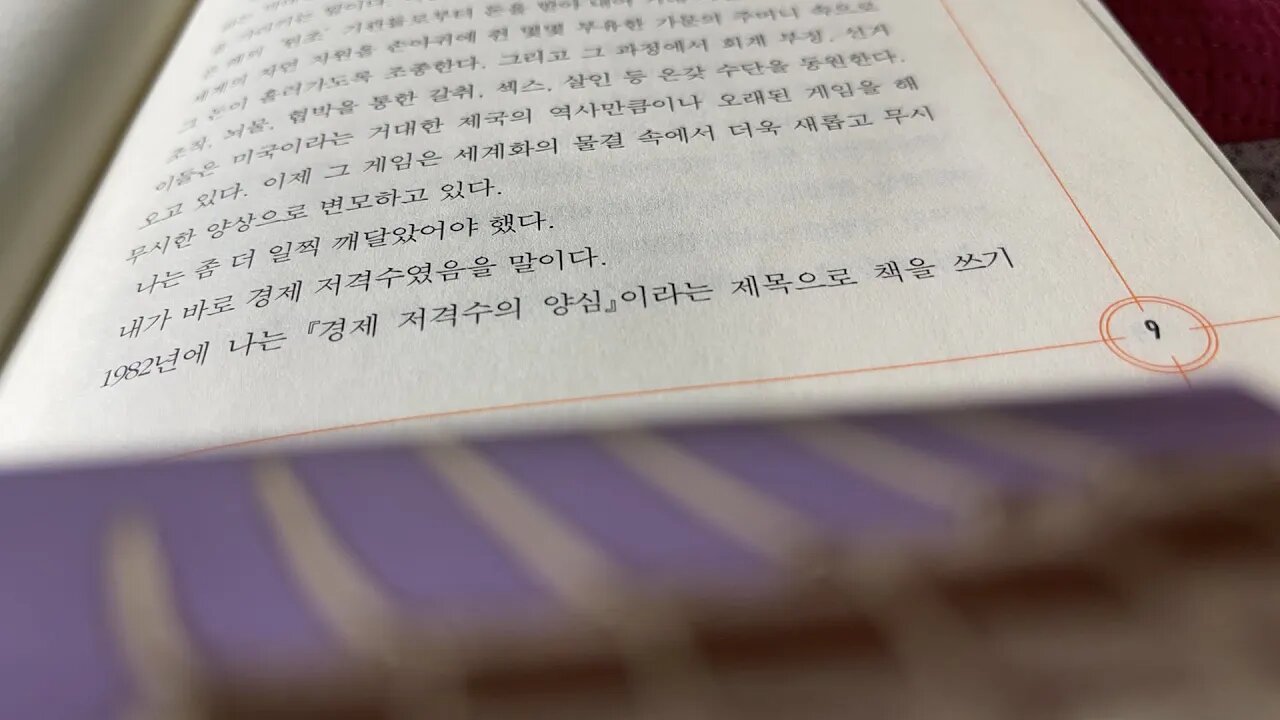 돈을 받아 내어
세계의 자연 자원을 손아귀에 쥔 몇몇 부유한 가문의 주머니 속으로
그 돈이 흘러가도록 조종한다. 그리고 그 과정에서 회계 부정, 선거
조작, 뇌물, 협박을 통한 갈취, 섹스, 살인 등 온갖 수단을 동원한다.
이들은 미국이라는 거대한 제국의 역사만큼이나 오래된 게임을 해
오고 있다. 이제 그 게임은 세계화의 물결 속에서 더욱 새롭고 무시
무시한 양상으로 변모하고 있다.
나는 좀 더 일찍 깨달았어야 했다.
내가 바로 경제 저격수였음을 말이다.
1982년에 나는 『경제 저격수의 양심』이라는 제목으로 책을 쓰기
9